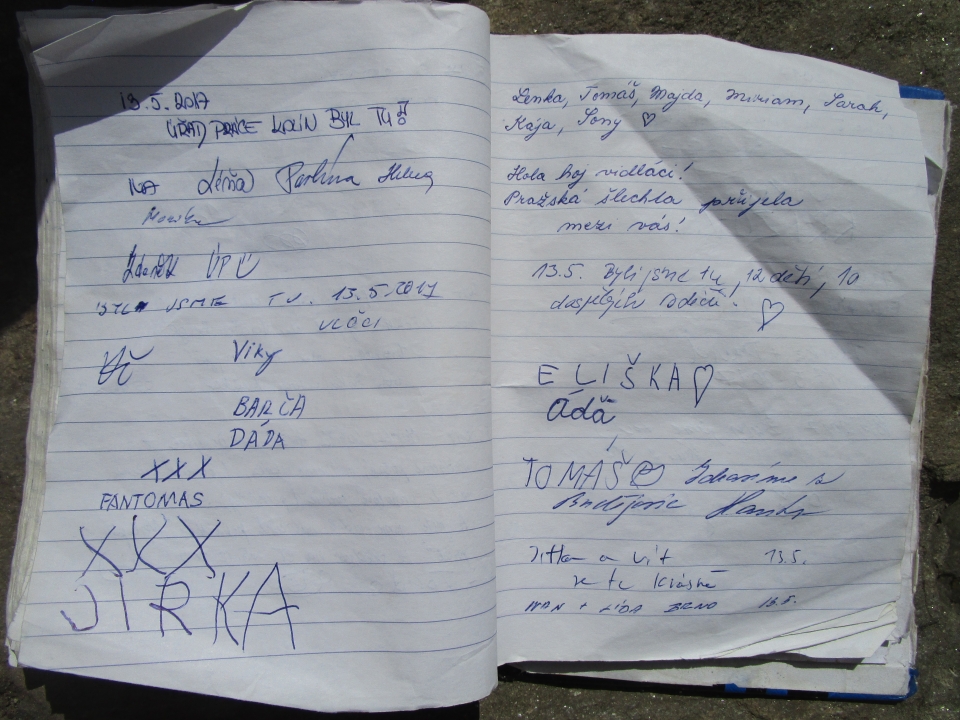 13.5.2017
ÚŘAD PRÁCE KOLÍN BYL TU
Pavlína Helena
Zdeněk ÚPÚ
JSME TU. 13.5.2017
VLČCI
Viky
BARČA
DÁĎA
XXX
FANTOMAS
XXX
JIRKA
Lenka, Tomáš, Majda, Miriam, Sarah,
Kája, Tony ♡
Hola hoj vidláci!
Pražská šlechta přijela
mezi vás!
13.5. Byli jsme tu, 12 dětí, 10
dospělých
♡
ELIŠKA♡
Áďa
TOMÁŠ Zdravíme z
Budějovic
Jitka a Vít 13.5.
je tu krásně
IVAN + LÍDA BRNO 13.5.